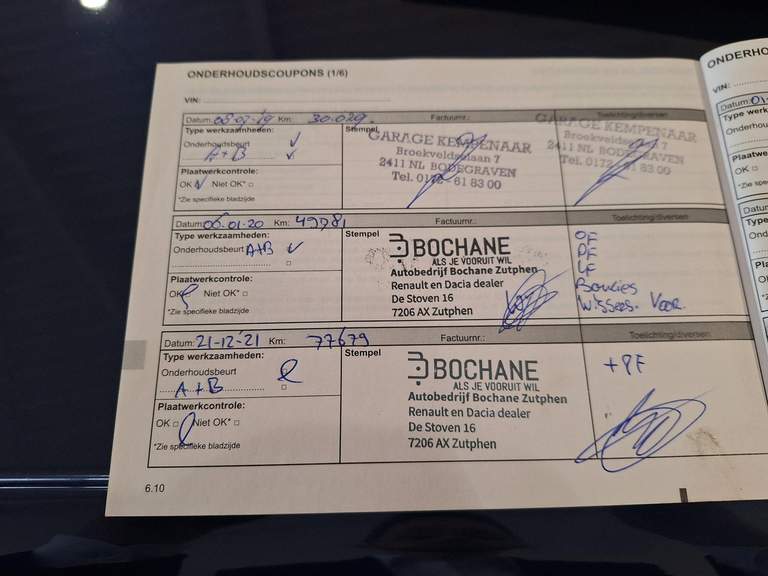 ONDERHOUDSCOUPONS (1/6)
VIN:
Datum: 08-02-'19 Km: 30.029. Factuurnr.: Toelichting/diversen
Type werkzaamheden:
Onderhoudsbeurt
A+B
Plaatwerkcontrole:
OK Niet OK*
*Zie specifieke bladzijde
Stempel
GARAGE KEMPENAAR
Broekveldselaan 7
2411 NL BODEGRAVEN
Tel. 0172 - 61 83 00
GARAGE KEMPENAAR
Broekveldselaan 7
2411 NL BODEGRAVEN
Tel. 0172 - 61 83 00
Datum: 06-01-20 Km: 49781 Factuurnr.: Toelichting/diversen
Type werkzaamheden:
Onderhoudsbeurt A+B
Plaatwerkcontrole:
OK Niet OK*
*Zie specifieke bladzijde
Stempel
BOCHANE
ALS JE VOORUIT WIL
Autobedrijf Bochane Zutphen
Renault en Dacia dealer
De Stoven 16
7206 AX Zutphen
OF
PF
LF
Bougies
Wissers. Voor.
Datum: 21-12-'21 Km: 77679 Factuurnr.: Toelichting/diversen
Type werkzaamheden:
Onderhoudsbeurt
A+B
Plaatwerkcontrole:
OK Niet OK*
*Zie specifieke bladzijde
Stempel
BOCHANE
ALS JE VOORUIT WIL
Autobedrijf Bochane Zutphen
Renault en Dacia dealer
De Stoven 16
7206 AX Zutphen
+PF
6.10
ONDERHO
VIN:
Datum: 01
Type werk
Onderhou
Plaatwe
OK
*Zie spec
Datum
Type
Ond
Pla
OK
*Zi
Da
Ty
O